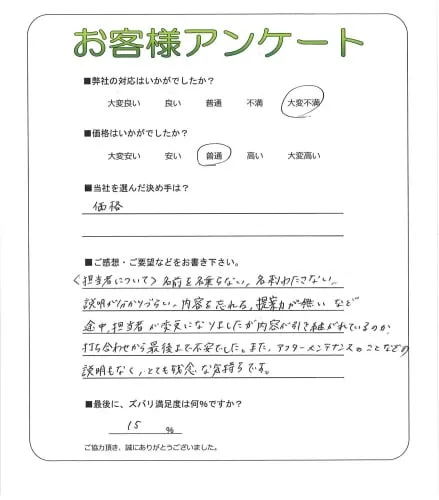 お客様アンケート
■弊社の対応はいかがでしたか?
大変良い 良い 普通 不満 大変不満
■価格はいかがでしたか?
大変安い 安い 普通 高い 大変高い
■当社を選んだ決め手は?
価格
■ご感想・ご要望などをお書き下さい。
〈担当者について〉名前を名乗らない、名刺わたさない。
説明が分かりづらい、内容を忘れる、提案力が無い など
途中、担当者が変更になりましたが内容が引き継がれているのか、
打ち合わせから最後まで不安でした。また、アフターメンテナンスのことなどの
説明もなく、とても残念な気持ちです。
■最後に、ズバリ満足度は何%ですか?
15 %
ご協力頂き、誠にありがとうございました。